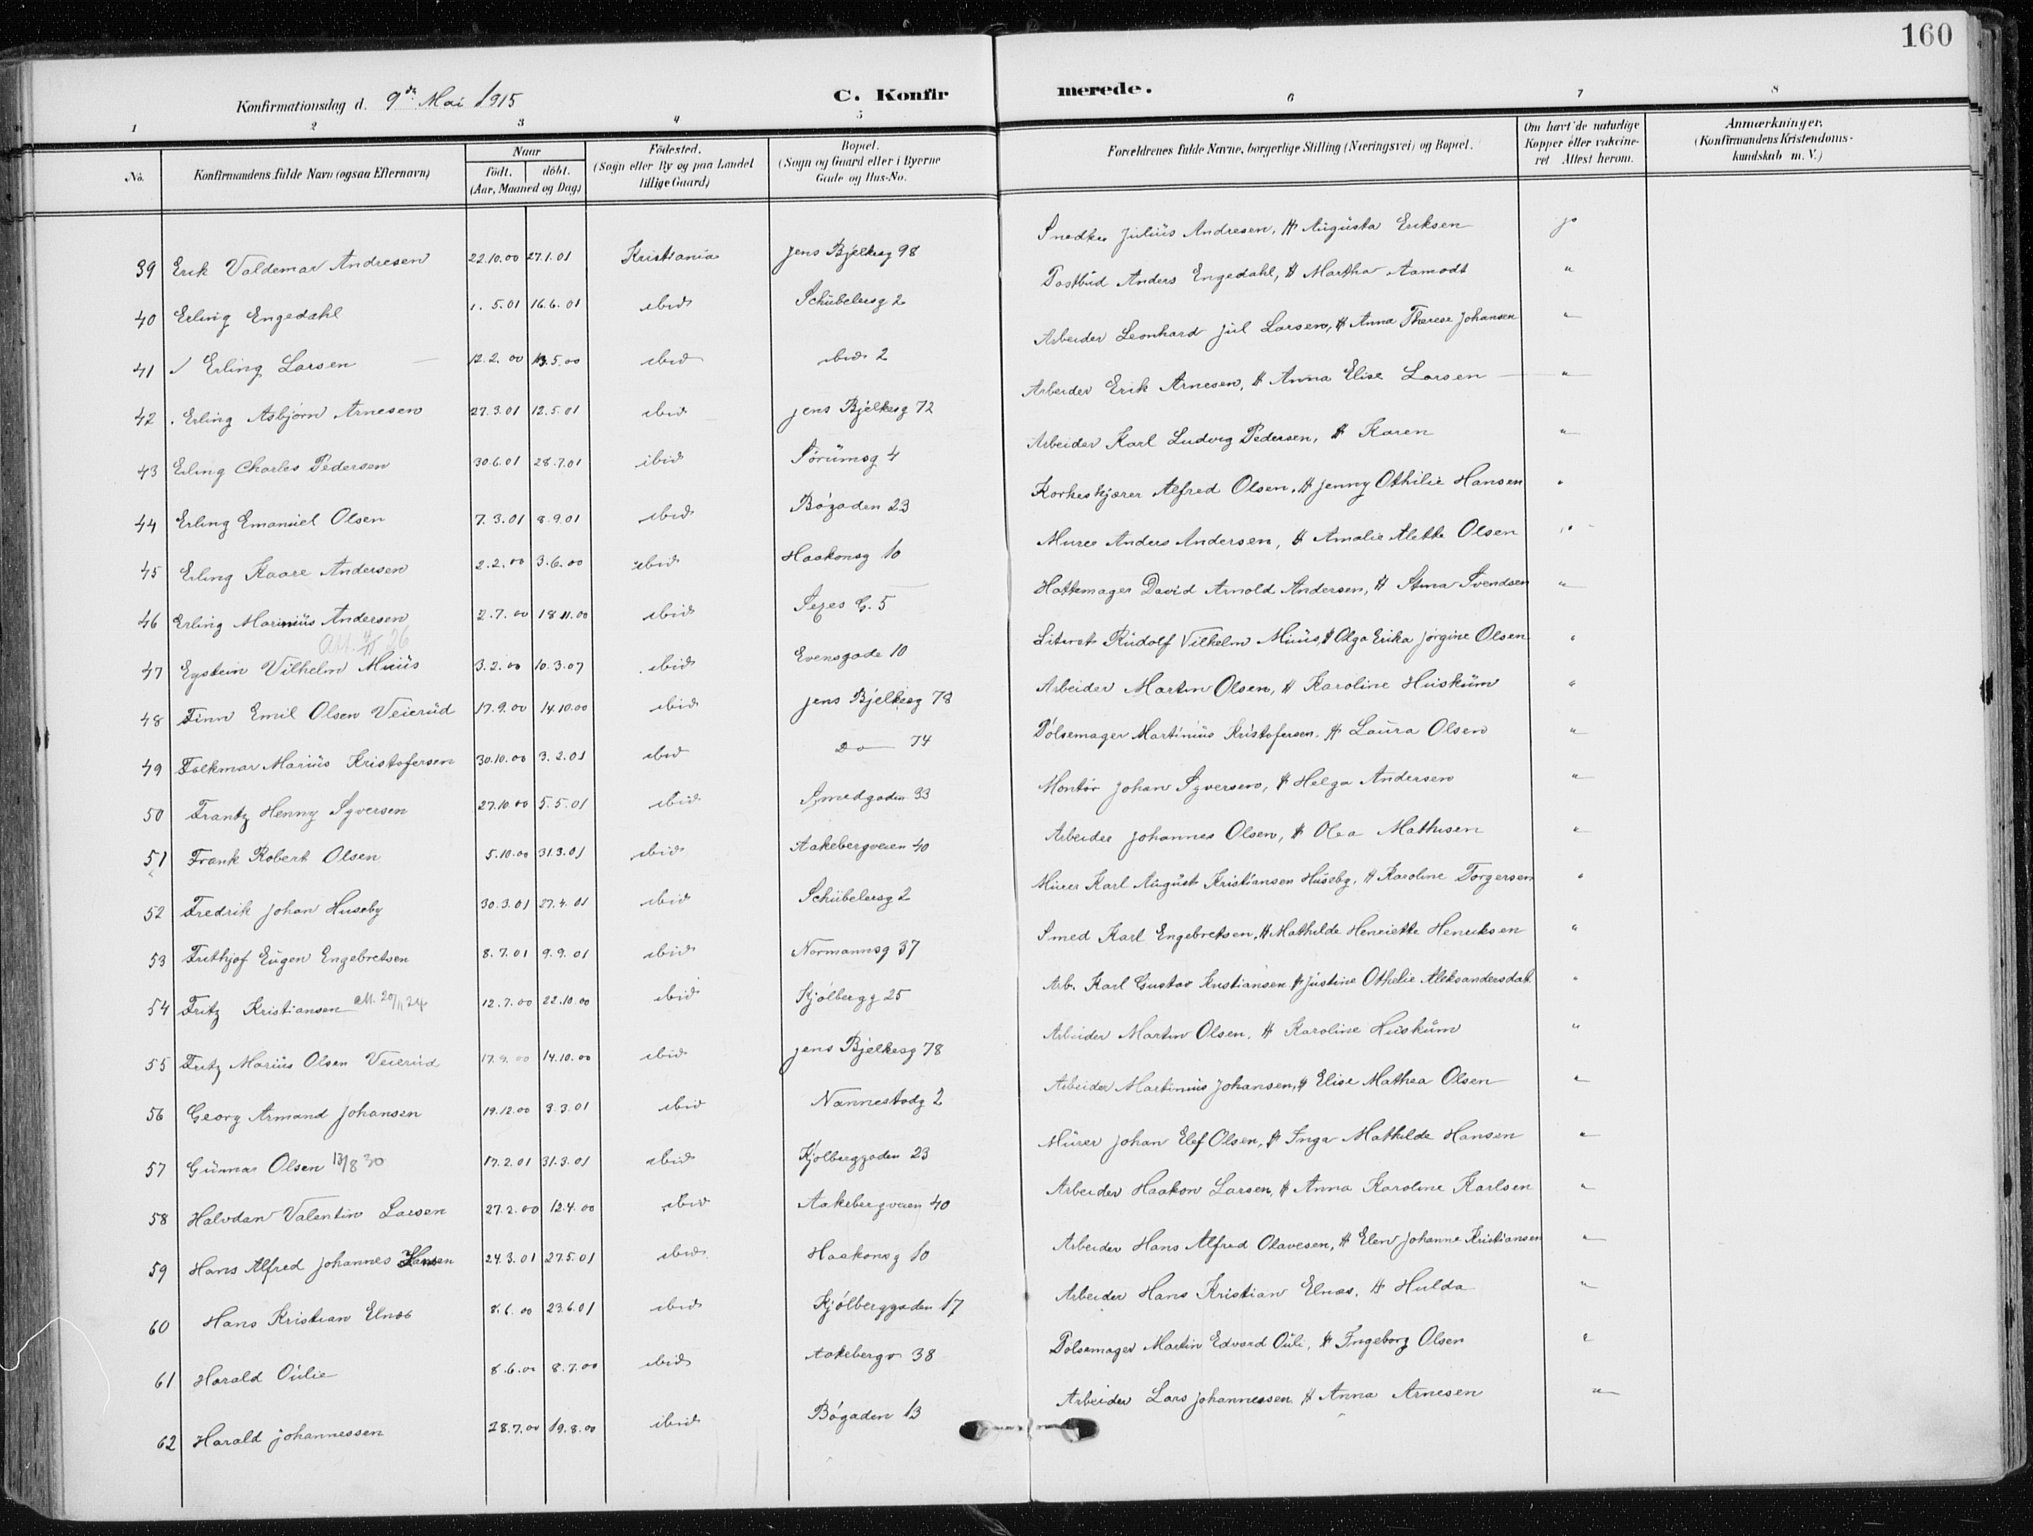 160
Konfirmationsdag d. 9de Mai 1915 C. Konfirmerede.
1 2 3 4 5 6 7 8
No. Konfirmandens fulde Navn (ogsaa Efternavn) Naar født. døbt. (Aar, Maaned og Dag) Fødested. (Sogn eller By og paa Landet tillige Gaard) Bopæl. (Sogn og Gaard eller i Byerne Gade og Hus-No. Forældrenes fulde Navne, borgerlige Stilling (Næringsvei) og Bopæl. Om havt de naturlige Kopper eller vaccineret Attest herom. Anmærkninger. (Konfirmandens Kristendomskundskab m. V.)
39 Erik Valdemar Andresen 22.10.00 27.1.01 Kristiania Jens Bjelkesg 98 Snedker Julius Andresen, H Augusta Eriksen ja
40 Erling Engedahl 1.5.01 16.6.01 ibid Schübelersg 2 Postbud Anders Engedahl, H Martha Aamodt "
41 Erling Larsen 12.2.00 13.5.00 ibid ibid 2 Arbeider Leonhard Jul Larsen, H Anna Therese Johansen "
42 Erling Asbjørn Arnesen 27.3.01 12.5.01 ibid Jens Bjelkesg 72 Arbeider Erik Arnesen, H Anna Elise Larsen "
43 Erling Charles Pedersen 30.6.01 28.7.01 ibid Sørumsg 4 Arbeider Karl Ludvig Pedersen, H Karen "
44 Erling Emanuel Olsen 7.3.01 8.9.01 ibid Bøgaden 23 Korkeskjærer Alfred Olsen, H Jenny Othilie Hansen "
45 Erling Kaare Andersen 2.2.00 3.6.00 ibid Haakonsg 10 Murer Anders Andersen, H Amalie Alette Olsen "
46 Erling Marinius Andersen 2.7.00 18.11.00 ibid G. 5 Hattemager David Arnold Andersen, H Stina Svendsen "
47 Eystein Vilhelm Muus 3.2.00 10.3.07 ibid Evensgade 10 Rudolf Vilhelm Muus, H Olga Erika Jørgine Olsen "
48 Finn Emil Olsen Veierud 17.9.00 14.10.00 ibid Jens Bjelkesg 78 Arbeider Martin Olsen, H Karoline Huskum "
49 Folkmar Marius Kristofersen 30.10.00 3.2.01 ibid Do 74 Pølsemager Martinius Kristofersen. H Laura Olsen "
50 Frantz Henny Syversen 27.10.00 5.5.01 ibid Smedgaden 33 Montør Johan Syversen, H Helga Andersen "
51 Frank Robert Olsen 5.10.00 31.3.01 ibid Aakebergveien 40 Arbeider Johannes Olsen, H Olea Mathisen "
52 Fredrik Johan Huseby 30.3.01 27.4.01 ibid Schübelersg 2 Murer Karl August Kristiansen Huseby, H Karoline Torgersen "
53 Frithjof Eugen Engebretsen 8.7.01 9.9.01 ibid Normannsg 37 Smed Karl Engebretsen, H Mathilde Henriette Henriksen "
54 Fritz Kristiansen att. 20/11 24 12.7.00 22.10.00 ibid Kjølbergg 25 Arb. Karl Gustav Kristiansen H Justine Othelie Aleksandersdat "
55 Fritz Marius Olsen Veierud 17.9.00 14.10.00 ibid Jens Bjelkesg 78 Arbeider Martin Olsen, H Karoline Huskum "
56 Georg Armand Johansen 19.12.00 3.3.01 ibid Nannestadg 2 Arbeider Martinius Johansen, H Elise Mathea Olsen "
57 Gunnar Olsen 13/8 30 17.2.01 31.3.01 ibid Kjølberggaden 23 Murer Johan Elef Olsen, H Inga Mathilde Hansen "
58 Halvdan Valentin Larsen 27.2.00 12.4.00 ibid Aakebergveien 40 Arbeider Haakon Larsen, H Anna Karoline Karlsen "
59 Hans Alfred Johannes Hansen 24.3.01 27.5.01 ibid Haakonsg 10 Arbeider Hans Alfred Olavesen, H Elen Johanne Kristiansen "
60 Hans Kristian Elnæs 8.6.00 23.6.01 ibid Kjølberggaden 17 Arbeider Hans Kristian Elnæs, H Hulda "
61 Harald Oulie 8.6.00 8.7.00 ibid Aakebergv 38 Pølsemager Martin Edvard Ouli, H Ingeborg Olsen "
62 Harald Johannessen 28.7.00 19.8.00 ibid Bøgaden 13 Arbeider Lars Johannessen H Anna Arnesen "